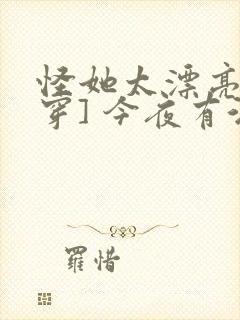 怪她太漂亮
穿]今夜有
羅惜